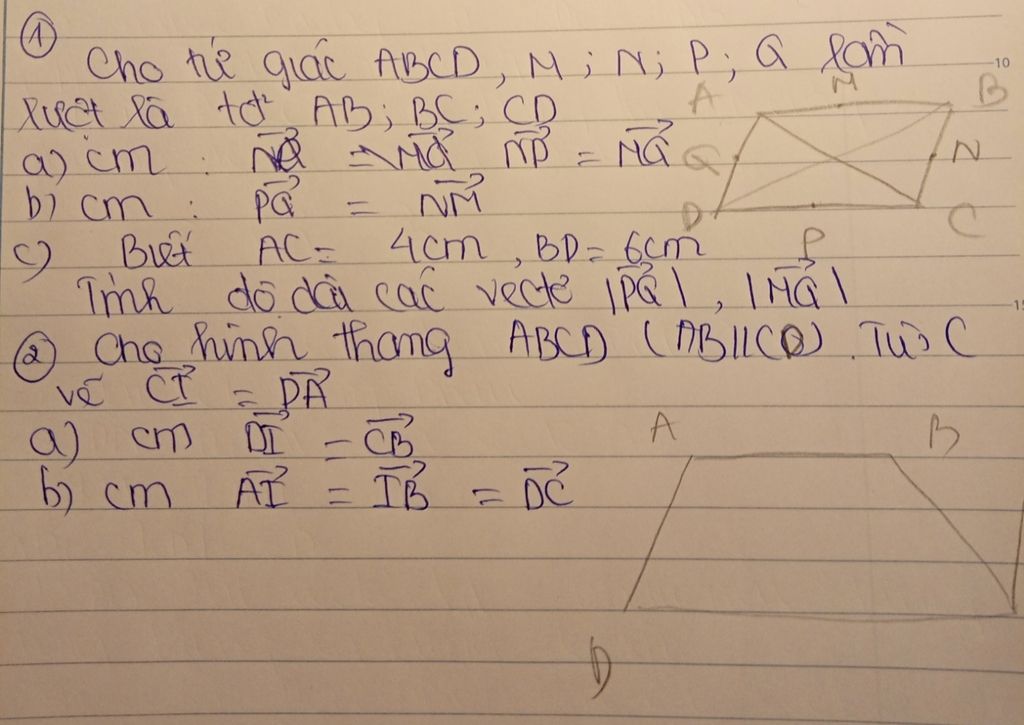 ①
Cho tứ giác ABCD, M; N; P; Q lần
lượt là tđ AB; BC; CD
a) cm : NP = MQ
b) cm : PQ = NM
c) Biết AC = 4cm, BD = 6cm
Tính độ dài các vectơ |PQ|, |MQ|
A M B
Q N
D P C
10
② Cho hình thang ABCD (AB//CD). Từ C
vẽ CI = DA
a) cm DI = CB
b) cm AI = IB = DC
A B
D